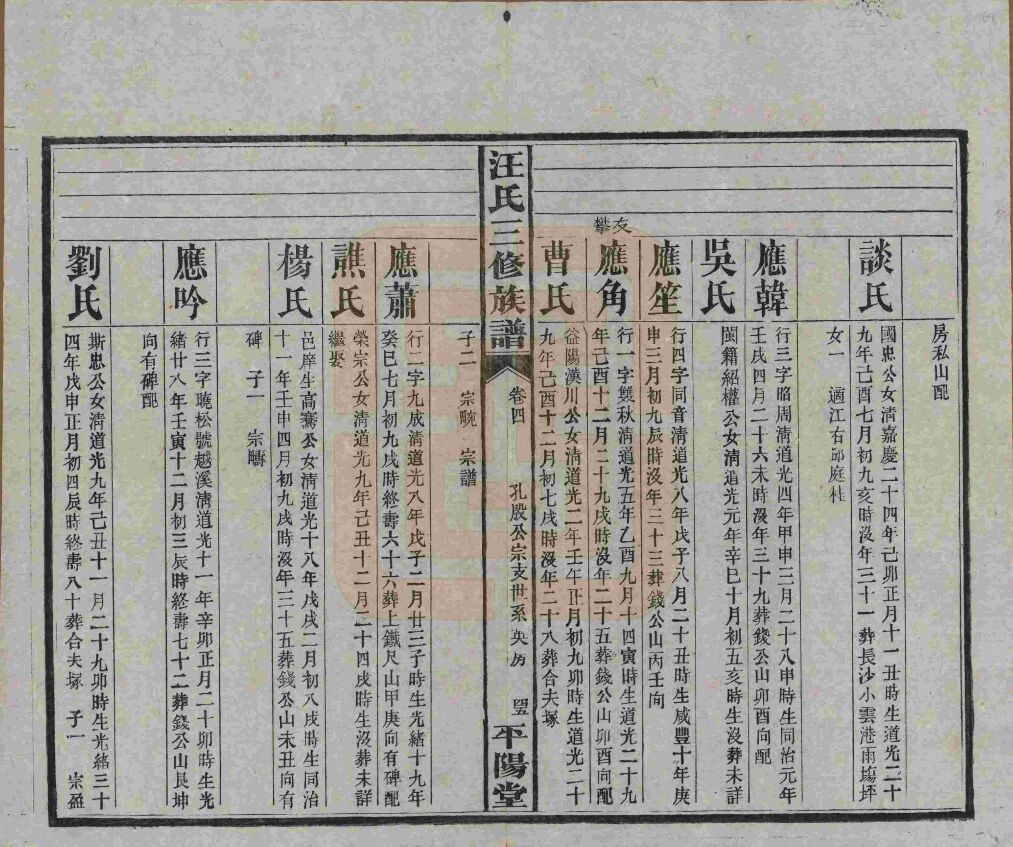 房私山配
談氏
國忠公女清嘉慶二十四年己卯正月十一丑時生道光二十
九年己酉七月初九亥時沒年三十一葬長沙小雲港雨塲坪
女一　適江右邱庭桂
應韓
行三字略周清道光四年甲申三月二十八申時生同治元年
壬戌四月二十六未時沒年三十九葬錢公山卯酉向配
吳氏
閩籍紹權公女清道光元年辛巳十月初五亥時生沒葬未詳
應笙
行四字同音清道光八年戊子八月二十丑時生咸豐十年庚
申三月初九辰時沒年三十三葬錢公山丙壬向
友攀
應角
行一字雙秋清道光五年乙酉九月十四寅時生道光二十九
年己酉十二月二十九戌時沒年二十五葬錢公山卯酉向配
曹氏
益陽漢川公女清道光二年壬午正月初九卯時生道光二十
九年己酉十二月初七戌時沒年二十八葬合夫塚
汪氏三修族譜
卷四
孔殷公宗支世系英房
平陽堂
子二　宗畹　宗譜
應蕭
行二字九成清道光八年戊子二月廿三子時生光緒十九年
癸巳七月初九戌時終壽六十六葬上鐵尺山甲庚向有碑配
譙氏
榮宗公女清道光九年己丑十二月二十四戌時生沒葬未詳
繼娶
楊氏
邑庠生高騫公女清道光十八年戊戌二月初八戌時生同治
十一年壬申四月初九戌時沒年三十五葬錢公山未丑向有
碑　子一　宗疇
應吟
行三字曉松號越溪清道光十一年辛卯正月二十卯時生光
緒廿八年壬寅十二月初三辰時終壽七十二葬錢公山艮坤
向有碑配
劉氏
斯忠公女清道光九年己丑十一月二十九卯時生光緒三十
四年戊申正月初四辰時終壽八十葬合夫塚　子一　宗